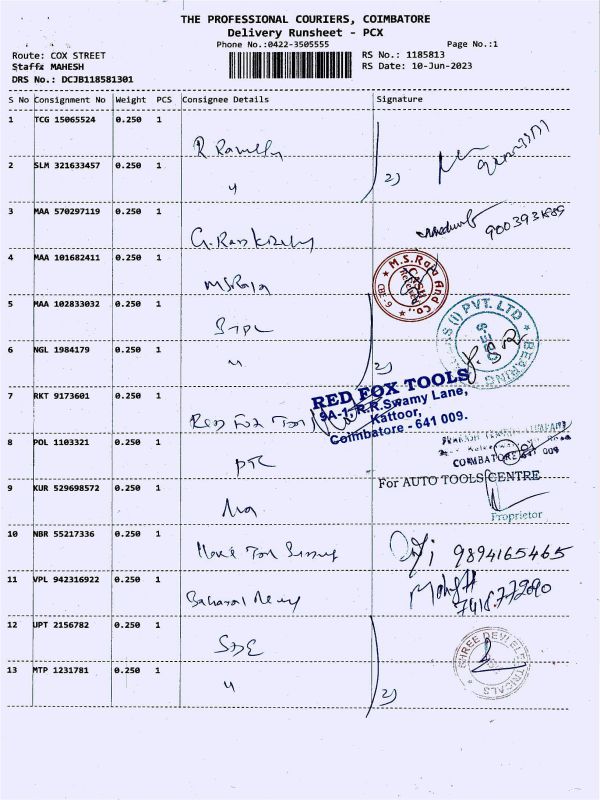 THE PROFESSIONAL COURIERS, COIMBATORE
Delivery Runsheet - PCX
Phone No.:0422-3505555 Page No.:1
Route: COX STREET RS No.: 1185813
Staffx MAHESH RS Date: 10-Jun-2023
DRS No.: DCJB118581301
S No Consignment No Weight PCS Consignee Details Signature
1 TCG 15065524 0.250 1
2 SLM 321633457 0.250 1 2)
3 MAA 570297119 0.250 1 9003931889
4 MAA 101682411 0.250 1 MSRaja M.S.Raja And Co., CASH CBE-9
5 MAA 102833032 0.250 1 (I) PVT. LTD BEARING
6 NGL 1984179 0.250 1 2)
RED FOX TOOLS
9A-1, R.R.Swamy Lane,
Kattoor,
Coimbatore - 641 009.
7 RKT 9173601 0.250 1 Red Fox Tool
8 POL 1103321 0.250 1 PTC
COIMBATORE 641 009
9 KUR 529698572 0.250 1
For AUTO TOOLS CENTRE
Proprietor
10 NBR 55217336 0.250 1 9894165465
11 VPL 942316922 0.250 1
12 UPT 2156782 0.250 1 SDE SHREE DEVI ELECTRICALS
13 MTP 1231781 0.250 1 2)